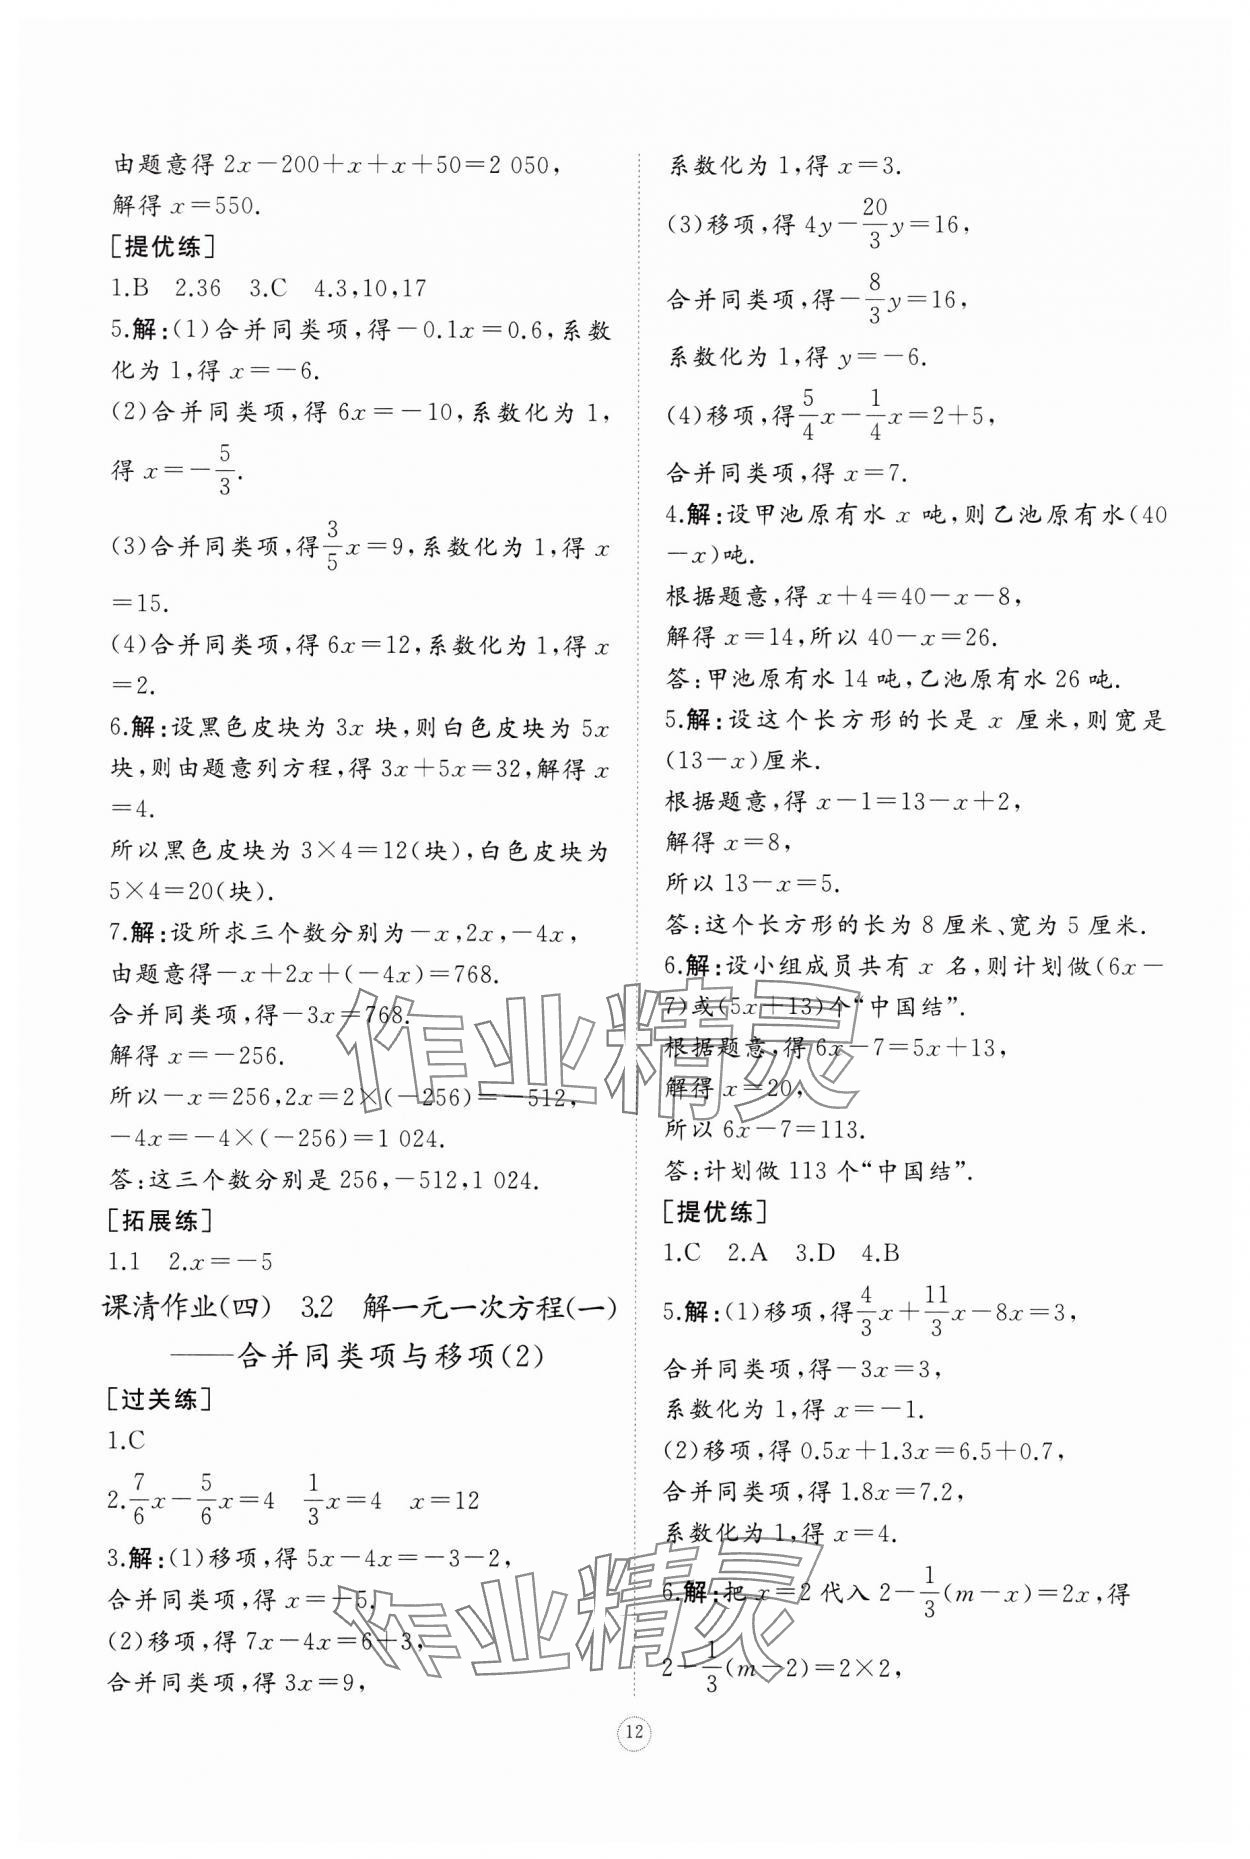 由题意得 2x－200＋x＋x＋50＝2 050，
解得 x＝550.
[提优练]
1.B 2.36 3.C 4.3,10,17
5.解:(1)合并同类项,得－0.1x＝0.6,系数
化为 1,得 x＝－6.
(2)合并同类项,得 6x＝－10,系数化为 1,
得 x＝－5/3.
(3)合并同类项,得3/5x＝9,系数化为 1,得 x
＝15.
(4)合并同类项,得 6x＝12,系数化为 1,得 x
＝2.
6.解:设黑色皮块为 3x 块,则白色皮块为 5x
块,则由题意列方程,得 3x＋5x＝32,解得 x
＝4.
所以黑色皮块为 3×4＝12(块),白色皮块为
5×4＝20(块).
7.解:设所求三个数分别为－x,2x,－4x,
由题意得－x＋2x＋(－4x)＝768.
合并同类项,得－3x＝768.
解得 x＝－256.
所以－x＝256,2x＝2×(－256)＝－512,
－4x＝－4×(－256)＝1 024.
答:这三个数分别是 256,－512,1 024.
[拓展练]
1.1 2.x＝－5
课清作业(四) 3.2 解一元一次方程(一)
——合并同类项与移项(2)
[过关练]
1.C
2.7/6x－5/6x＝4 1/3x＝4 x＝12
3.解:(1)移项,得 5x－4x＝－3－2,
合并同类项,得 x＝－5.
(2)移项,得 7x－4x＝6＋3,
合并同类项,得 3x＝9,
系数化为 1,得 x＝3.
(3)移项,得 4y－20/3y＝16,
合并同类项,得－8/3y＝16,
系数化为 1,得 y＝－6.
(4)移项,得5/4x－1/4x＝2＋5,
合并同类项,得 x＝7.
4.解:设甲池原有水 x 吨,则乙池原有水(40
－x)吨.
根据题意,得 x＋4＝40－x－8,
解得 x＝14,所以 40－x＝26.
答:甲池原有水 14 吨,乙池原有水 26 吨.
5.解:设这个长方形的长是 x 厘米,则宽是
(13－x)厘米.
根据题意,得 x－1＝13－x＋2,
解得 x＝8,
所以 13－x＝5.
答:这个长方形的长为 8 厘米、宽为 5 厘米.
6.解:设小组成员共有 x 名,则计划做(6x－
7)或(5x＋13)个“中国结”.
根据题意,得 6x－7＝5x＋13,
解得 x＝20,
所以 6x－7＝113.
答:计划做 113 个“中国结”.
[提优练]
1.C 2.A 3.D 4.B
5.解:(1)移项,得4/3x＋11/3x－8x＝3,
合并同类项,得－3x＝3,
系数化为 1,得 x＝－1.
(2)移项,得 0.5x＋1.3x＝6.5＋0.7,
合并同类项,得 1.8x＝7.2,
系数化为 1,得 x＝4.
6.解:把 x＝2 代入 2－1/3(m－x)＝2x,得
2－1/3(m－2)＝2×2,
12
作业精灵
作业精灵